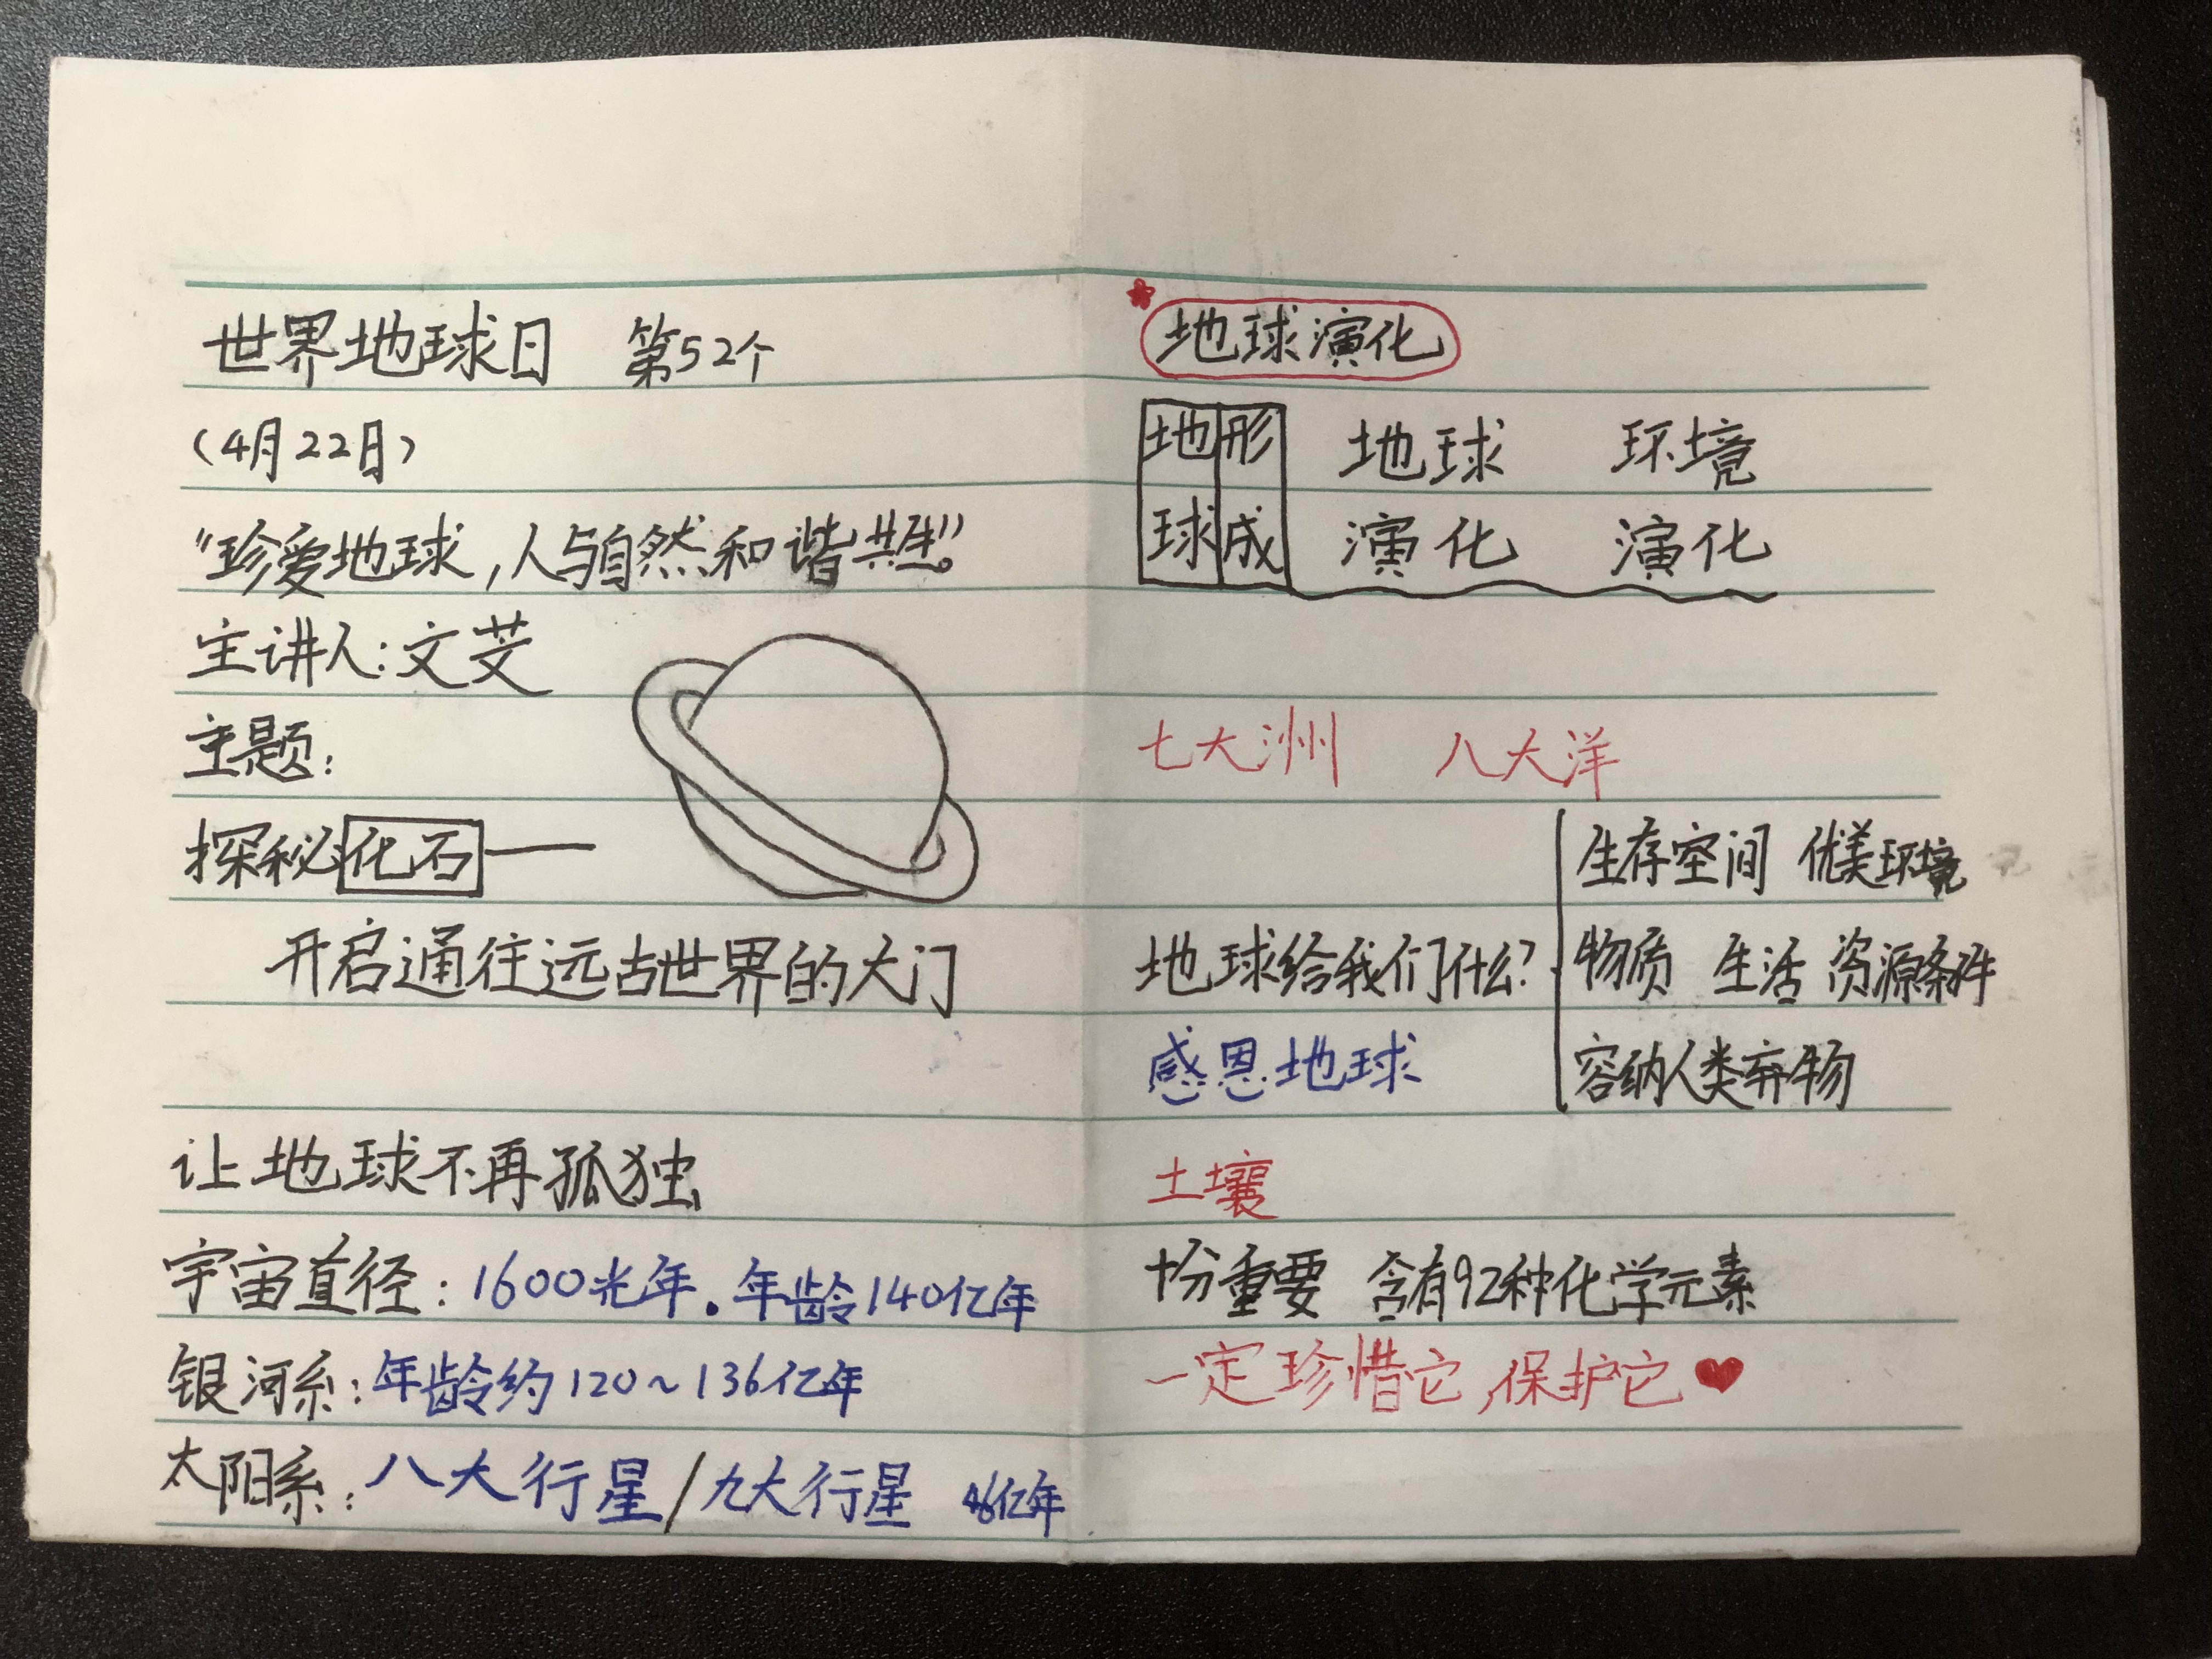 世界地球日 第52个
(4月22日)
“珍爱地球,人与自然和谐共生”。
主讲人:文芠
主题:
探秘化石——
开启通往远古世界的大门
让地球不再孤独
宇宙直径:1600光年.年龄140亿年
银河系:年龄约120~136亿年
太阳系:八大行星/九大行星 46亿年
地球演化
地球形成 地球演化 环境演化
七大洲 八大洋
地球给我们什么?
生存空间 优美环境
物质 生活 资源条件
容纳人类弃物
感恩地球
土壤
十分重要 含有92种化学元素
一定珍惜它,保护它